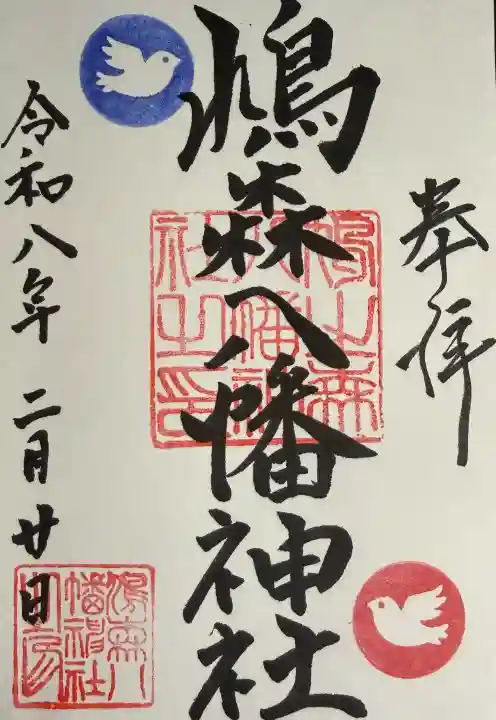 奉拝
鳩森八幡神社
令和八年 二月廿日
鳩之森
八幡神
社之印
鳩森八
幡神社